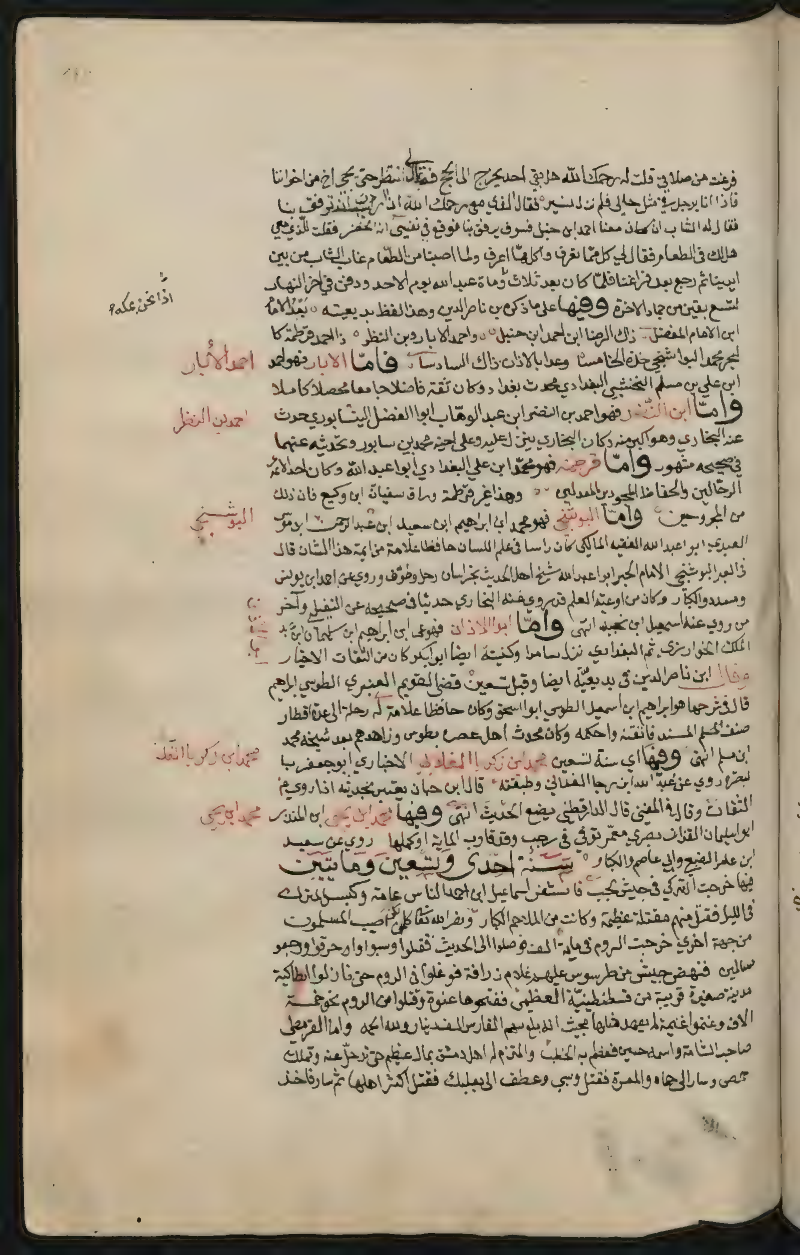 فرغت من صلاتي قلت له رحمك الله هل بقي احد يخرج الى الحج فقال لي انتظر حتى يجي اخ من اخواننا
فاذا انا برجل في مثل حالي فلم نزل نسير فقال الذي معي رحمك الله ان رايت ترفق بنا
فقال له الشاب ان كان معنا احمد ابن حنبل فسوف يرفق بنا فوقع في نفسي انه الخضر فقلت للذي معي
هل لك في الطعام فقال لي كل مما تعرف واكل مما اعرف ولما اصبنا من الطعام غاب الشاب من بين
ايدينا ثم رجع بعد فراغنا فلما كان بعد ثلاث وماة عبد الله يوم الاحد ودفن في اخر النهار
لتسع بقين من جماد الاخرة وفيها على ما ذكره بن ناصر الدين وهذا لفظ بديعيته بعد الامام
ابن الامام المفضل ذاك الرضا ابن احمد ابن حنبل واحمد الابار وبن النظر ذا احمد قرطمة كا
لحبر محمد البوشنجي خذه الخامسا وعد بالاذان ذاك السادسا فاما الابار فهو احمد
ابن علي بن مسلم النخشبي البغدادي محدث بغداد وكان ثقة فاضلا جامعا محصلا كاملا
واما ابن النضر فهو احمد بن النضر ابن عبد الوهاب ابوا الفضل النيسابوري حدث
عنه البخاري وهو اكبر منه وكان البخاري ينزل عليه وعلى اخيه محمد بنيسابور وتحديثه عنهما
في صحيحه مشهور واما قرطمة فهو محمد ابن علي البغدادي ابوا عبد الله وكان احد الائمة
الرحالين والحفاظ المجودين المعدلين وهذا غير قرطمة وراق سفيان ابن وكيع فان ذلك
من المجروحين واما البوشنجي فهو محمد ابن ابراهيم ابن سعيد ابن عبد الرحمن ابن موسى
العبدي ابو عبد الله الفقيه المالكي كان راسا في علم اللسان حافظا علامة من ايمة هذا الشان قال
في العبر البوشنجي الامام الحبر ابوا عبد الله شيخ اهل الحديث بخراسان رحل وطوف وروي عن احمد ابن يونس
ومسدد والكبار وكان من اوعية العلم قد روي عنه البخاري حديثا في صحيحه عن النفيلي وآخر
من روي عنه اسمعيل ابن نجيد انتهى واما ابو الاذان فهو عمر ابن ابراهيم ابن سليمان ابن
الملك الخوارزمي ثم البغدادي نزل سامرا وكنيته ايضا ابوا بكر كان من الثقات الاخيار
وقال ابن ناصر الدين في بديعيته ايضا وقبل تسعين قضى القويم العنبري الطوسي ابراهيم
قال في شرحها هو ابراهيم ابن اسمعيل الطوسي ابوا اسحق وكان حافظا علامة له رحلة الى عدة اقطار
صنف المسند فاتقنه واحكمه وكان محدث اهل عصره بطوس وزاهدهم بعد شيخه محمد
ابن اسلم انتهى وفيها اي سنة تسعين محمد ابن زكريا الغلابي الاخباري ابو جعفر با
لبصرة روي عن عبد الله ابن رجا الغداني وطبقته قال ابن حبان يعتبر بحديثه اذا روي عن
الثقات وقال في المغني قال الدارقطني يضع الحديث انتهى وفيها محمد ابن يحيى ابن المنذر
ابو سليمان القزاز بصري معمر توفي في رجب وقد قارب الماية او كملها روي عن سعيد
ابن عامر الضبعي وابي عاصم والكبار سنة احدى وتسعين وماتيين
فيها خرجت الترك في جيش لجب فاستنفر اسماعيل ابن احمد الناس عامة وكبس الترك
في الليل فقتل منهم مقتلة عظيمة وكانت من الملاحم الكبار ونصر الله تعالى لكن اصيب المسلمون
من جهة اخري خرجت الروم في ماية الف فوصلوا الى الحدث فقتلوا وسبوا واحرقوا ورجعوا
سالمين فنهض جيش من طرسوس عليهم غلام زرافة فوغلوا في الروم حتى نازلوا انطاكية
مدينة صغيرة قريبة من قسطنطينية العظمى ففتحوها عنوة وقتلوا من الروم نحو خمسة
الاف وغنموا غنيمة لم يعهد مثلها بحيث انه بلغ سهم الفارس الف دينار ولله الحمد واما القرمطي
صاحب الشامة واسمه حسين فعظم به الخطب والتزم له اهل دمشق بمال عظيم حتى ترحل عنه وتملك
حمص وسار الى حماه والمعرة فقتل وسبي وعطف الى بعلبك فقتل اكثر اهلها ثم سار فاخذ
اذا نحن بمكة
احمد الأبار
احمد بن النظر
البوشنجي
محمد ابن زكريا الغلابي
محمد ابن يحيى